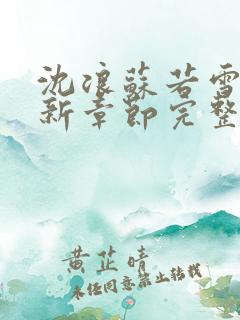 沈浪蘇若雪
新章節完整
黄芷晴
未经同意禁止转载